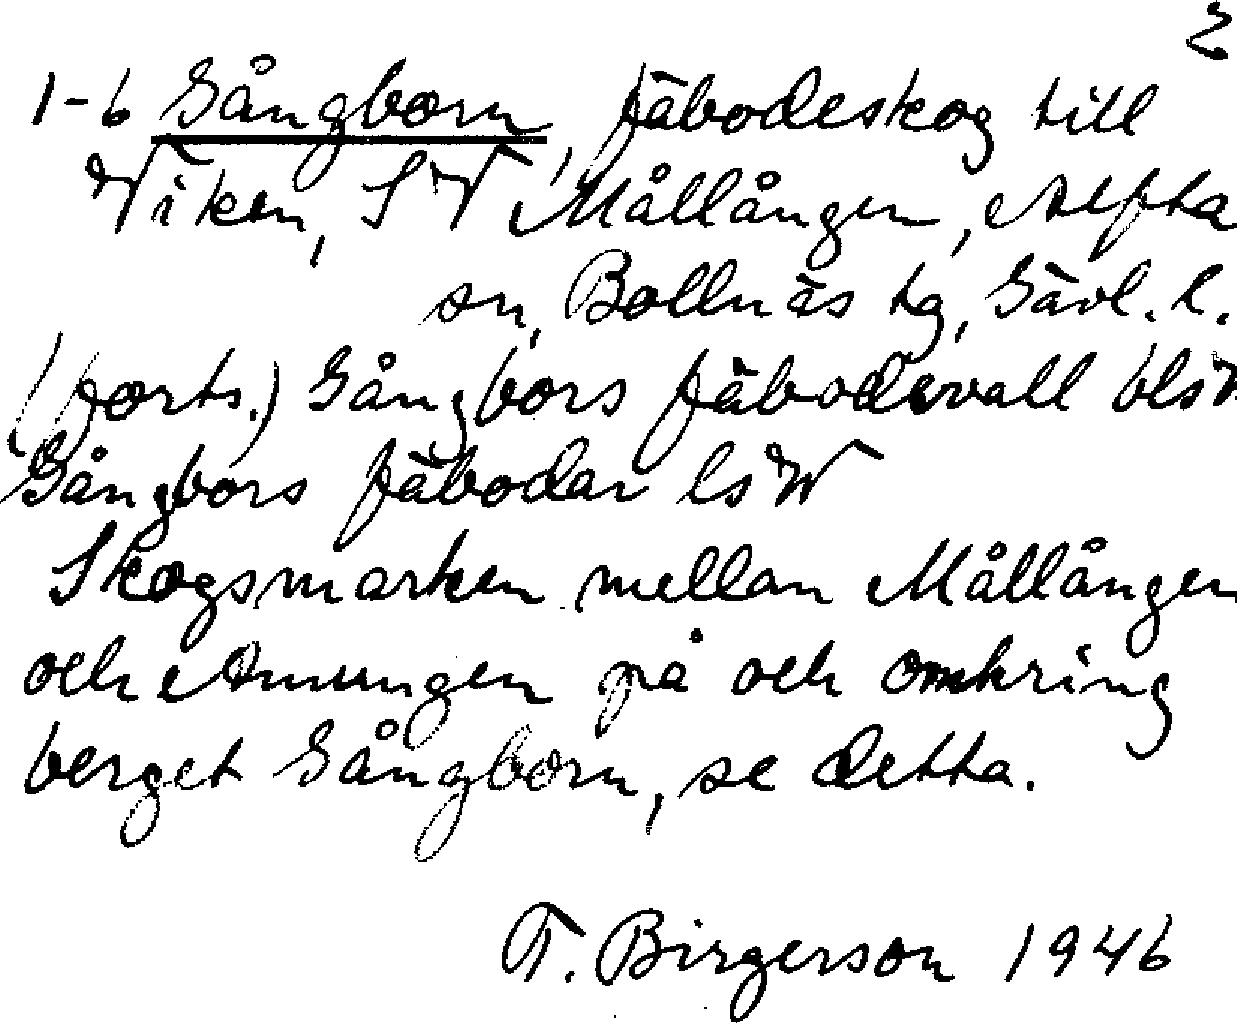 2
1-6 Gångborn, fäbodeskog till
Viken, SV Mållången, Alfta
sn, Bollnäs tg, Gävl. l.
(forts.) Gångbors fäbodevall blsV
Gångbors fäbodar lsW
Skogsmarken mellan Mållången
och Amungen på och omkring
berget Gångborn, se detta.
T. Birgerson 1946